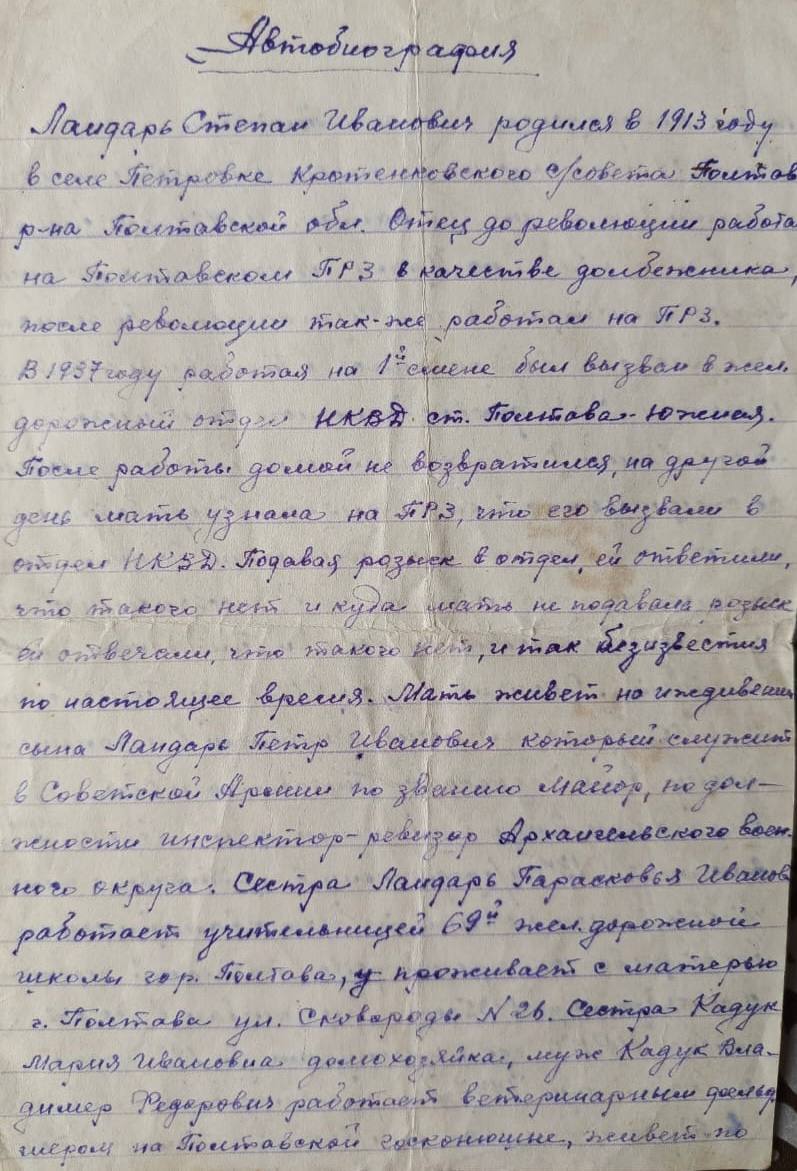 Автобиография
Ландарь Степан Иванович родился в 1913 году
в селе Петровке Кротенковского с/совета Полтав
р-на Полтавской обл. Отец до революции работа
на Полтавском ПРЗ в качестве долбежника,
после революции так-же работал на ПРЗ.
В 1937 году работая на 1й смене был вызван в жел.
дорожный отдел НКВД ст. Полтава-Южная.
После работы домой не возвратился, на другой
день мать узнала на ПРЗ, что его вызвали в
отдел НКВД. Подавая розыск в отдел, ей ответили,
что такого нет и куда мать не подавала розыск
ей отвечали, что такого нет, и так безизвестия
по настоящее время. Мать живет на иждивении
сына Ландарь Петр Иванович который служит
в Советской Армии по званию Майор, по дол-
жности инспектор-ревизор Архангельского воен-
ного округа. Сестра Ландарь Парасковья Иванов
работает учительницей 69й жел.дорожной
школы гор. Полтава, проживает с матерью
г. Полтава ул. Сковороды N 26. Сестра Кадук
Мария Ивановна домохозяйка, муж Кадук Вла-
димер Федорович работает ветеринарным фельд
шером на Полтавской госконюшне, живет по